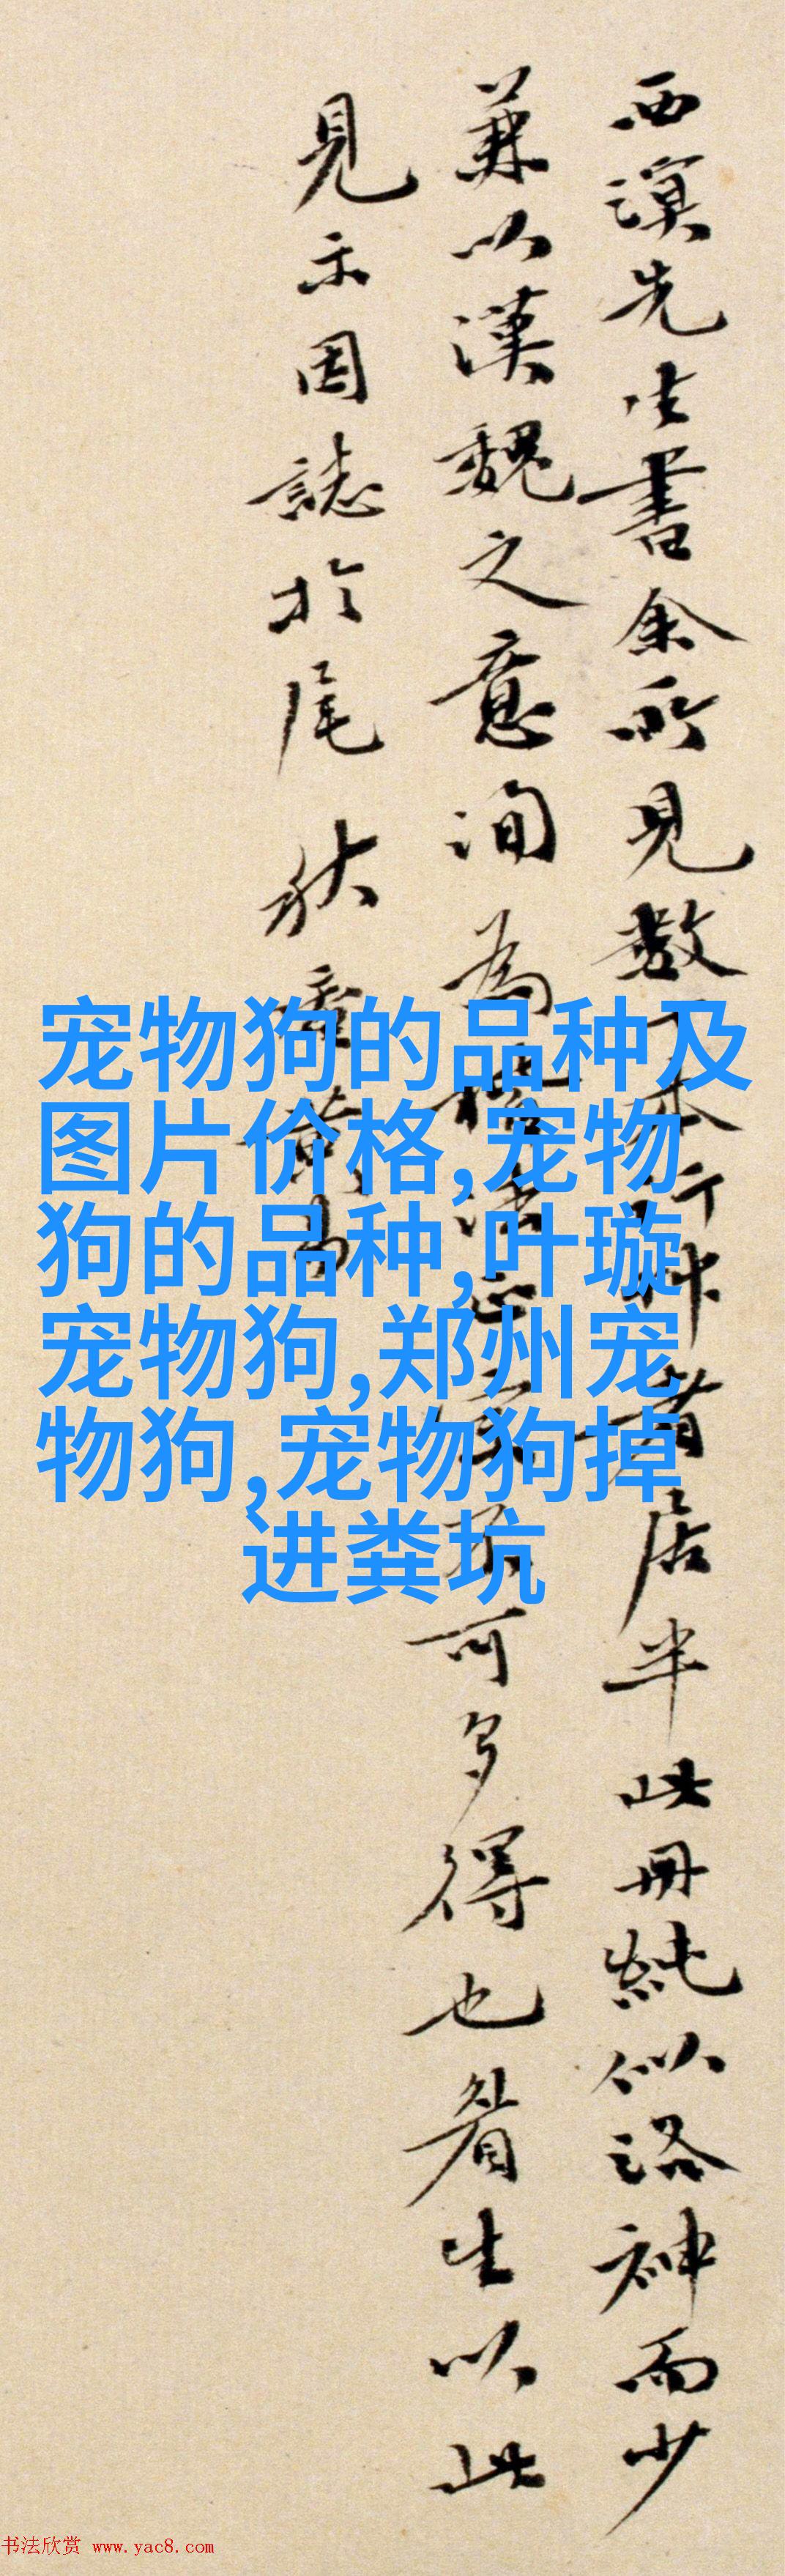 西溟先生書余所見數十本行神者居半此册純似洛神而少
兼以漢魏之意洵為楷法正宗不可多得也眉生以此
見示因誌於尾 秋
宠物狗的品种及
图片价格,宠物
狗的品种,叶璇
宠物狗,郑州宠
物狗,宠物狗掉
进粪坑
书法欣赏 www.yac8.com